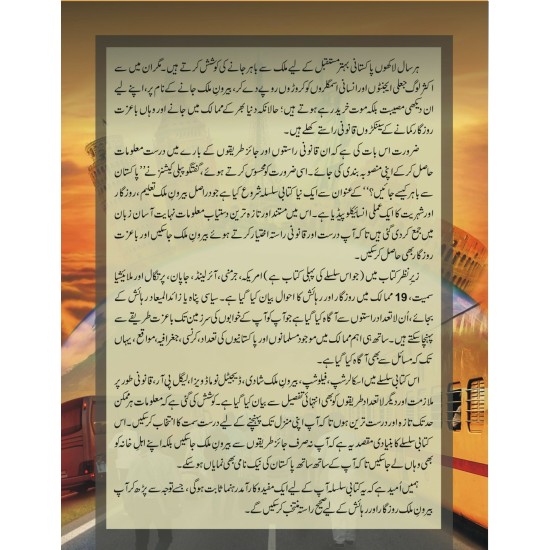 ہر سال لاکھوں پاکستانی بہتر مستقبل کے لیے ملک سے باہر جانے کی کوشش کرتے ہیں۔ مگر ان میں سے
اکثر لوگ جعلی ایجنٹوں اور انسانی اسمگلروں کو کروڑوں روپے دے کر، بیرونِ ملک جانے کے نام پر، اپنے لیے
ان دیکھی مصیبت بلکہ موت خرید رہے ہوتے ہیں؛ حالانکہ دنیا بھر کے ممالک میں جانے اور وہاں باعزت
روزگار کمانے کے سینکڑوں قانونی راستے کھلے ہیں۔
ضرورت اس بات کی ہے کہ ان قانونی راستوں اور جائز طریقوں کے بارے میں درست معلومات
حاصل کر کے اپنی منصوبہ بندی کی جائے۔ اسی ضرورت کو محسوس کرتے ہوئے، گفتگو پبلی کیشنز نے ’’پاکستان
سے باہر کیسے جائیں؟‘‘ کے عنوان سے ایک نیا کتابی سلسلہ شروع کیا ہے جو دراصل بیرونِ ملک تعلیم، روزگار
اور شہریت کا ایک عملی انسائیکلوپیڈیا ہے۔ اس میں مستند اور تازہ ترین دستیاب معلومات نہایت آسان زبان
میں جمع کر دی گئی ہیں تاکہ آپ درست اور قانونی راستہ اختیار کرتے ہوئے بیرونِ ملک جا سکیں اور باعزت
روزگار بھی حاصل کر سکیں۔
زیرِ نظر کتاب میں (جو اس سلسلے کی پہلی کتاب ہے) امریکہ، جرمنی، آئرلینڈ، جاپان، پرتگال اور ملائیشیا
سمیت، 19 ممالک میں روزگار اور رہائش کا احوال بیان کیا گیا ہے۔ سیاسی پناہ یا زائد المیعاد رہائش کے
بجائے، اُن لاتعداد راستوں سے آگاہ کیا گیا ہے جو آپ کو آپ کے خوابوں کی سرزمین تک باعزت طریقے سے
پہنچا سکتے ہیں۔ ساتھ ہی اہم ممالک میں موجود مسلمانوں اور پاکستانیوں کی تعداد، کرنسی، جغرافیہ، مواقع، یہاں
تک کہ مسائل سے بھی آگاہ کیا گیا ہے۔
اس کتابی سلسلے میں اسکالرشپ، فیلوشپ، بیرونِ ملک شادی، ڈیجیٹل نوماڈ ویزا، لیگل پی آر، قانونی طور پر
ملازمت اور دیگر لاتعداد طریقوں کو بھی انتہائی تفصیل سے بیان کیا گیا ہے۔ کوشش کی گئی ہے کہ معلومات ہر ممکن
حد تک تازہ اور درست ترین ہوں تاکہ آپ اپنی منزل تک پہنچنے کے لیے درست سمت کا انتخاب کر سکیں۔ اس
کتابی سلسلے کا بنیادی مقصد یہ ہے کہ آپ نہ صرف جائز طریقوں سے بیرونِ ملک جا سکیں بلکہ اپنے اہلِ خانہ کو
بھی وہاں لے جا سکیں تاکہ آپ کے ساتھ ساتھ پاکستان کی نیک نامی بھی نمایاں ہو سکے۔
ہمیں اُمید ہے کہ یہ کتابی سلسلہ آپ کے لیے ایک مفید و کارآمد رہنما ثابت ہو گی، جسے توجہ سے پڑھ کر آپ
بیرونِ ملک روزگار اور رہائش کے لیے صحیح راستہ منتخب کر سکیں گے۔